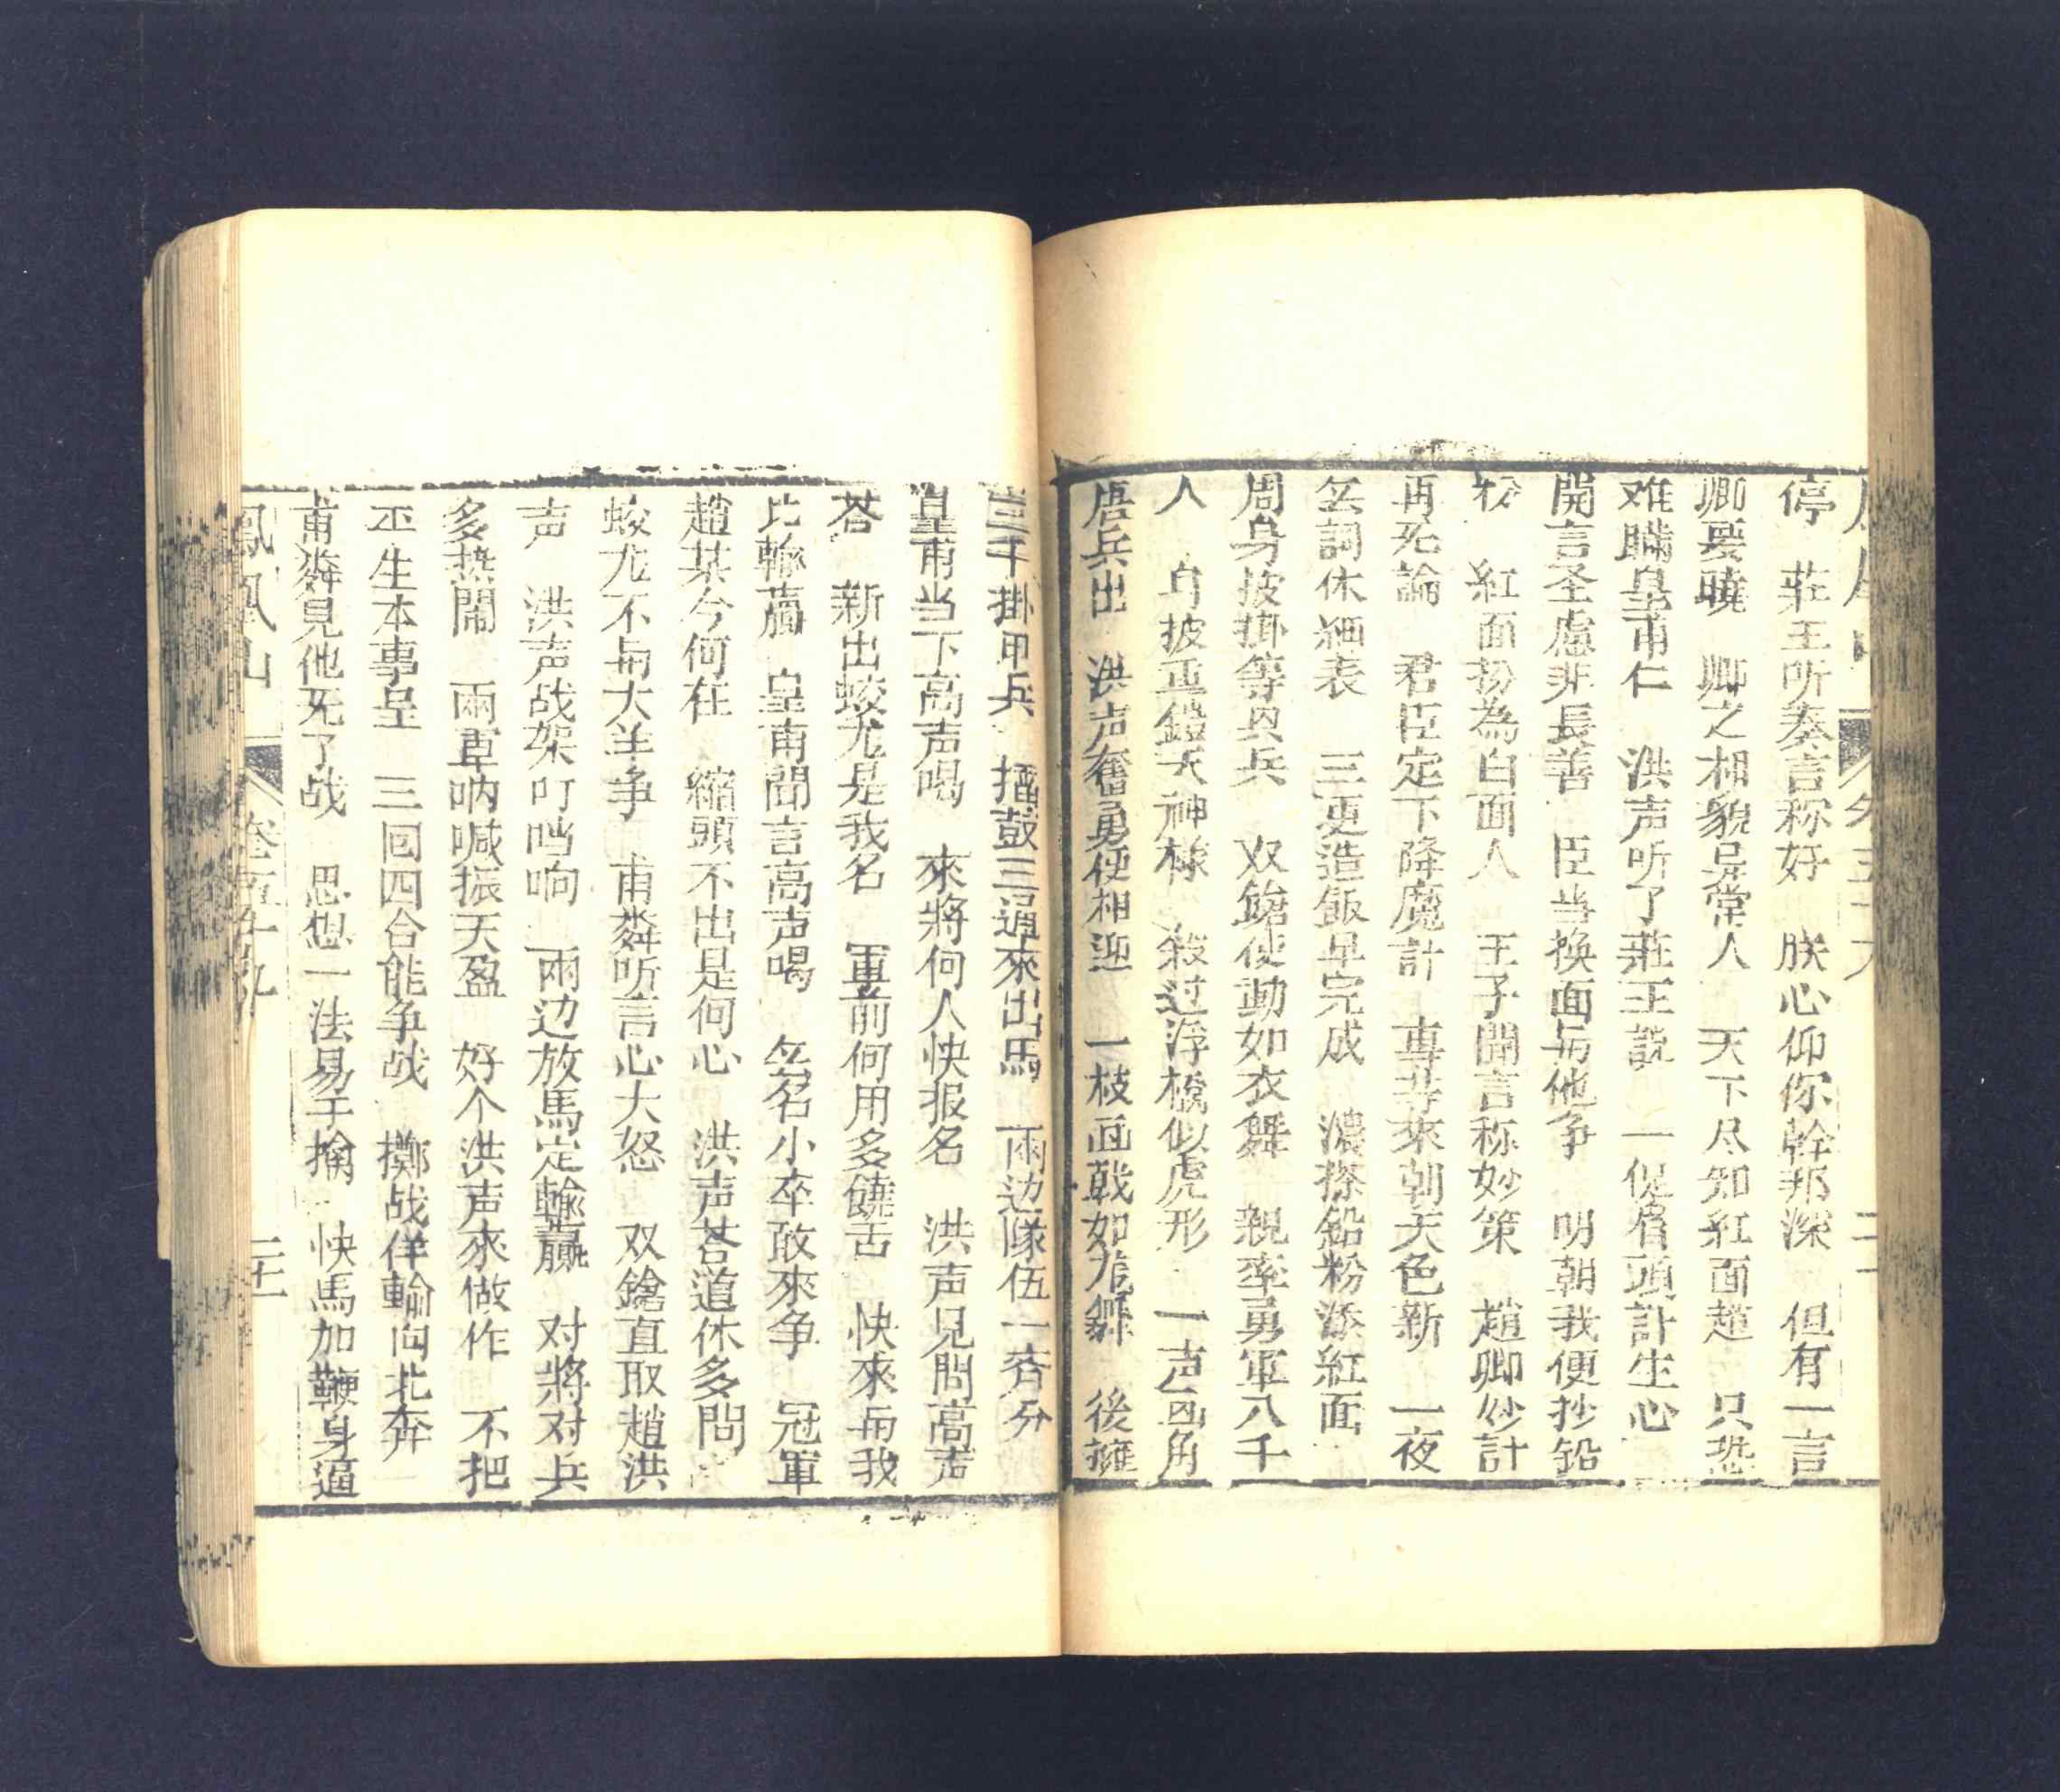 停 莊王听奏言称好 朕心仰你幹邦深 但有一言
卿要曉 卿之相貌异常人 天下尽知紅面趙 只恐
难瞞皇甫仁 洪声听了莊王說 一促眉頭計生心
開言圣慮非長善 臣当换面与他争 明朝我便抄鉛
粉 紅面扮為白面人 王子聞言称妙策 趙卿妙計
再死論 君臣定下降魔計 專等來朝天色新 一夜
詞休細表 三更造飯早完成 濃搽鉛粉添紅面
周身披掛等兵 双 使動如衣舞 親率勇軍八千
人 身披 鎧天神様 殺过浮橋似虎形 一声画角
唐兵出 洪声奮勇便相迎 一枝画戟如龙舞 後擁
三千掛甲兵 擂鼓三通來出馬 兩边隊伍一齐分
皇甫当下高声喝 來將何人快报名 洪声見問高声
荅 新出蛟尤是我名 軍前何用多饒舌 快來与我
比輸贏 皇甫聞言高声喝 名小卒敢來争 冠軍
趙某今何在 縮頭不出是何心 洪声荅道休多問
蛟尤不与犬羊争 甫粦听言心大怒 双鎗直取趙洪
声 洪声战架叮当响 兩边放馬定輸贏 对將对兵
多热閙 兩軍呐喊振天盈 好个洪声來做作 不把
平生本事呈 三回四合能争战 擲战佯輸向北奔
甫粦見他死了战 思想一法易于擒 快馬加鞭身逼
鳳凰山 卷五十九 二十一